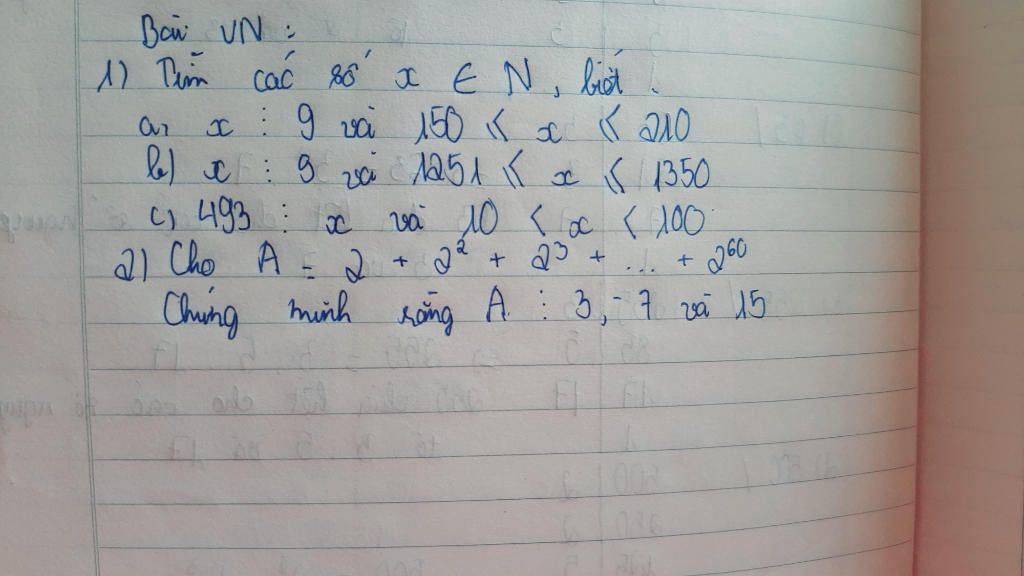 Bài VN :
1) Tìm các số x ∈ N, biết :
a, x ⋮ 9 và 150 ≤ x ≤ 210
b) x ⋮ 9 và 1251 ≤ x ≤ 1350
c) 493 ⋮ x và 10 < x < 100
2) Cho A = 2 + 2² + 2³ + ... + 2⁶⁰
Chứng minh rằng A ⋮ 3, 7 và 15